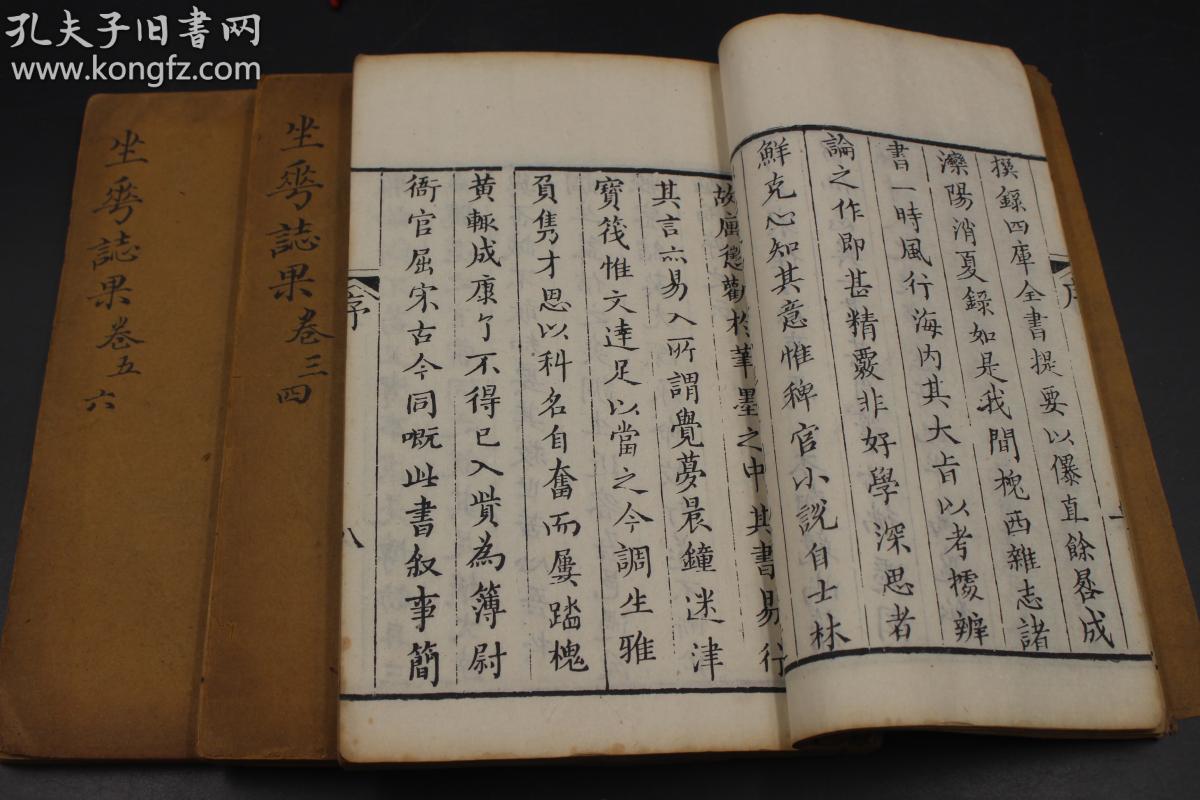 孔夫子旧書网
www.kongfz.com
撰錄四庫全書提要以儤直餘晷成
灤陽消夏錄如是我聞槐西雜志諸
書一時風行海内其大旨以考據辨
論之作即甚精覈非好學深思者
鮮克心知其意惟稗官小說自士林
故庽懲勸於筆墨之中其書易行
其言亦易入所謂覺夢晨鐘迷津
寶筏惟文達足以當之今調生雅
負雋才思以科名自奮而屢踏槐
黃輒成康了不得已入貲為簿尉
衙官屈宋古今同嘅此書叙事簡
序
八
坐華誌果卷三四
坐華誌果卷五六